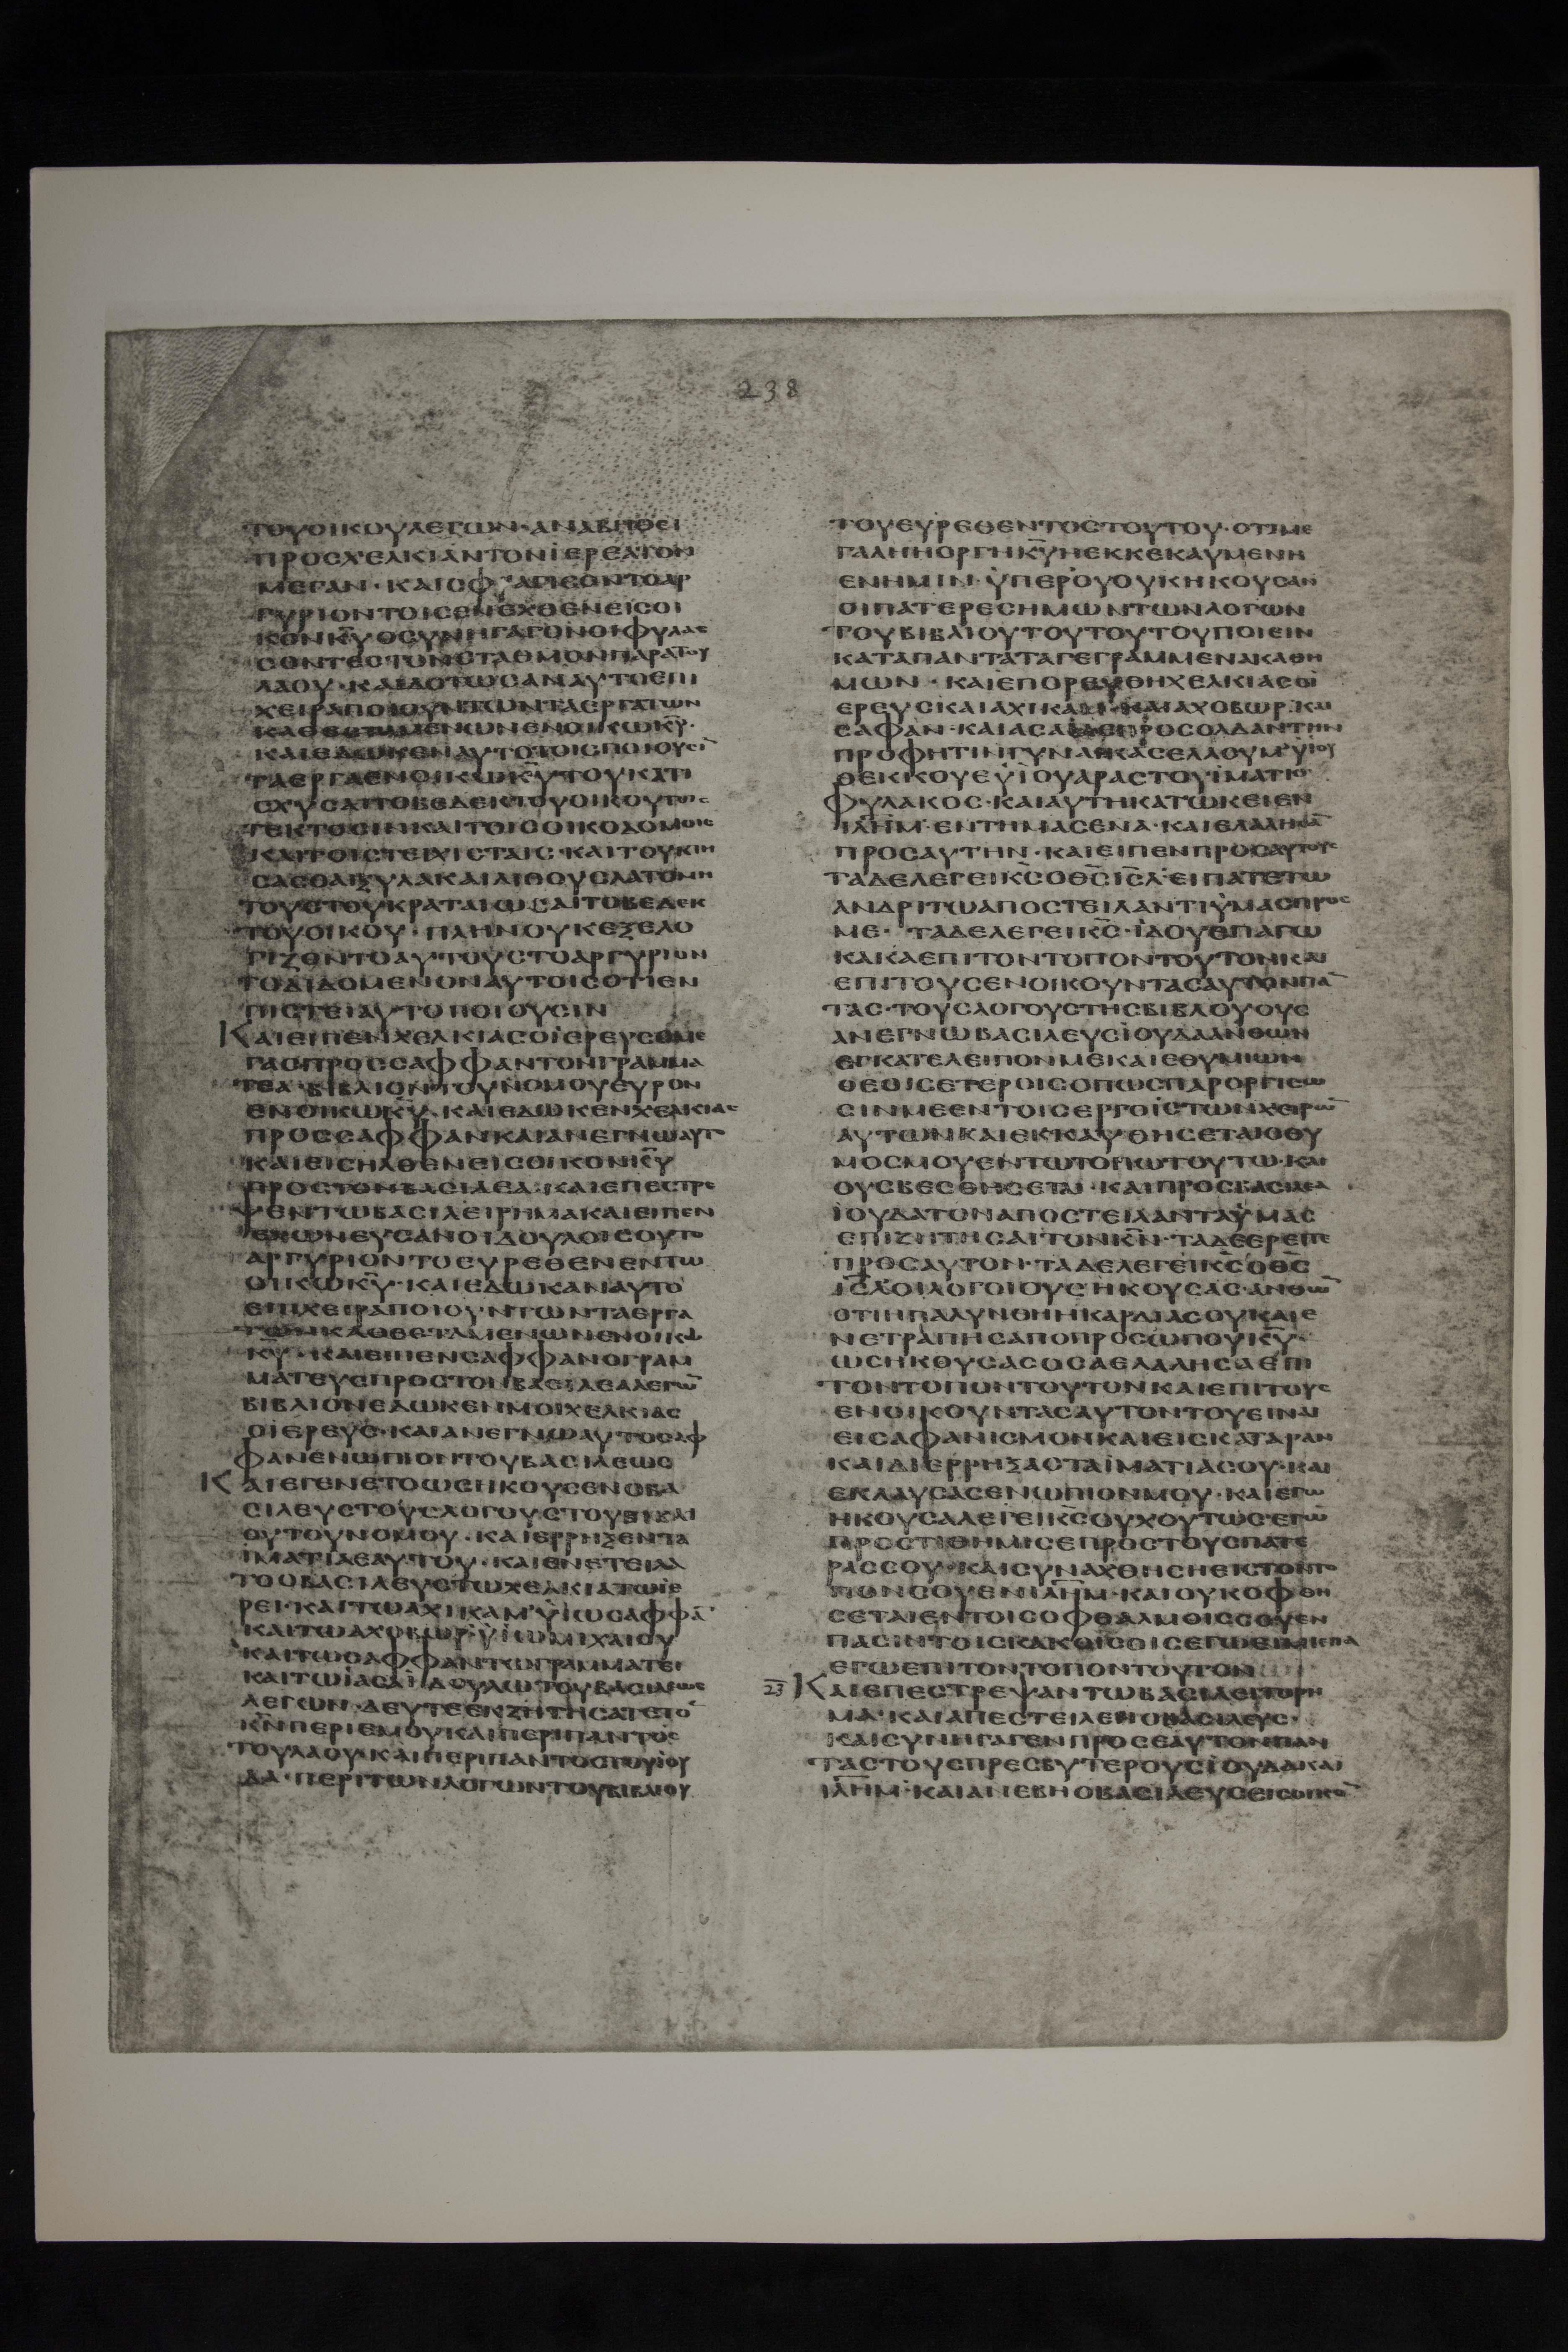 238
ΤΟΥΟΙΚΟΥΛΕΓΩΝ·ΑΝΑΒΗΘΕΙ
ΠΡΟΣΧΕΛΚΙΑΝΤΟΝΪΕΡΕΑΤΟΝ
ΜΕΓΑΝ·ΚΑΙΣΦΡΑΓΙΣΟΝΤΟΑΡ
ΓΥΡΙΟΝΤΟΕΙΣΕΝΕΧΘΕΝΕΙΣΟΙ
ΚΟΝΚ̅Υ̅ΟΣΥΝΗΓΑΓΟΝΟΙΦΥΛΑΣ
ΣΟΝΤΕΣΤΟΝΣΤΑΘΜΟΝΠΑΡΑΤΟΥ
ΛΑΟΥ·ΚΑΙΔΟΤΩΣΑΝΑΥΤΟΕΠΙ
ΧΕΙΡΑΠΟΙΟΥΝΤΩΝΤΑΕΡΓΑΤΩΝ
ΚΑΘΕΣΤΑΜΕΝΩΝΕΝΟΙΚΩΚ̅Υ̅·
ΚΑΙΕΔΩΚΕΝΑΥΤΟΤΟΙΣΠΟΙΟΥΣΙ̅
ΤΑΕΡΓΑΕΝΟΙΚΩΚ̅Υ̅ΤΟΥΚΑΤΙ
ΣΧΥΣΑΙΤΟΒΕΔΕΚΤΟΥΟΙΚΟΥΤΟΙΣ
ΤΕΚΤΟΣΙΝΚΑΙΤΟΙΣΟΙΚΟΔΟΜΟΙΣ
ΚΑΙΤΟΙΣΤΕΙΧΙΣΤΑΙΣ·ΚΑΙΤΟΥΚΤΗ
ΣΑΣΘΑΙΞΥΛΑΚΑΙΛΙΘΟΥΣΛΑΤΟΜΗ
ΤΟΥΣΤΟΥΚΡΑΤΑΙΩΣΑΙΤΟΒΕΔΕΚ
ΤΟΥΟΙΚΟΥ·ΠΛΗΝΟΥΚΕΞΕΛΟ
ΓΙΖΟΝΤΟΑΥΤΟΥΣΤΟΑΡΓΥΡΙΟΝ
ΤΟΔΙΔΟΜΕΝΟΝΑΥΤΟΙΣΟΤΙΕΝ
ΠΙΣΤΕΙΑΥΤΟΠΟΙΟΥΣΙΝ
ΚΑΙΕΙΠΕΝΧΕΛΚΙΑΣΟΪΕΡΕΥΣΟΜΕ
ΓΑΣΠΡΟΣΣΑΦΦΑΝΤΟΝΓΡΑΜΜΑ
ΤΕΑ·ΒΙΒΛΙΟΝΤΟΥΝΟΜΟΥΕΥΡΟΝ
ΕΝΟΙΚΩΚ̅Υ̅·ΚΑΙΕΔΩΚΕΝΧΕΛΚΙΑΣ
ΠΡΟΣΣΑΦΦΑΝΚΑΙΑΝΕΓΝΩΑΥΤΟ
ΚΑΙΕΙΣΗΛΘΕΝΕΙΣΟΙΚΟΝΚ̅Υ̅
ΠΡΟΣΤΟΝΒΑΣΙΛΕΑ·ΚΑΙΕΠΕΣΤΡΕ
ΨΕΝΤΩΒΑΣΙΛΕΙΡΗΜΑΚΑΙΕΙΠΕΝ
ΕΧΩΝΕΥΣΑΝΟΙΔΟΥΛΟΙΣΟΥΤΟ
ΑΡΓΥΡΙΟΝΤΟΕΥΡΕΘΕΝΕΝΤΩ
ΟΙΚΩΚ̅Υ̅·ΚΑΙΕΔΩΚΑΝΑΥΤΟ
ΕΠΙΧΕΙΡΑΠΟΙΟΥΝΤΩΝΤΑΕΡΓΑ
ΤΩΝΚΑΘΕΣΤΑΜΕΝΩΝΕΝΟΙΚΩ
Κ̅Υ̅·ΚΑΙΕΙΠΕΝΣΑΦΦΑΝΟΓΡΑΜ
ΜΑΤΕΥΣΠΡΟΣΤΟΝΒΑΣΙΛΕΑΛΕΓΩ̅
ΒΙΒΛΙΟΝΕΔΩΚΕΝΜΟΙΧΕΛΚΙΑΣ
ΟΪΕΡΕΥΣ·ΚΑΙΑΝΕΓΝΩΑΥΤΟΣΑΦ
ΦΑΝΕΝΩΠΙΟΝΤΟΥΒΑΣΙΛΕΩΣ
ΚΑΙΕΓΕΝΕΤΟΩΣΗΚΟΥΣΕΝΟΒΑ
ΣΙΛΕΥΣΤΟΥΣΛΟΓΟΥΣΤΟΥΒΙΒΛΙ
ΟΥΤΟΥΝΟΜΟΥ·ΚΑΙΕΡΡΗΞΕΝΤΑ
ΪΜΑΤΙΑΕΑΥΤΟΥ·ΚΑΙΕΝΕΤΕΙΛΑ
ΤΟΟΒΑΣΙΛΕΥΣΤΩΧΕΛΚΙΑΤΩΪΕ
ΡΕΙ·ΚΑΙΤΩΑΧΙΚΑΜ·ΫΙΩΣΑΦΦΑ̅
ΚΑΙΤΩΑΧΟΒΩΡ·ΫΙΩΜΙΧΑΙΟΥ
ΚΑΙΤΩΣΑΦΦΑΝΤΩΓΡΑΜΜΑΤΕΙ
ΚΑΙΤΩΪΑΣΑΙΔΟΥΛΩΤΟΥΒΑΣΙΛΕΩΣ
ΛΕΓΩΝ·ΔΕΥΤΕΕΚΖΗΤΗΣΑΤΕΤΟ̅
Κ̅Ν̅ΠΕΡΙΕΜΟΥΚΑΙΠΕΡΙΠΑΝΤΟΣ
ΤΟΥΛΑΟΥ·ΚΑΙΠΕΡΙΠΑΝΤΟΣΤΟΥΪΟΥ
ΔΑ·ΠΕΡΙΤΩΝΛΟΓΩΝΤΟΥΒΙΒΛΙΟΥ
ΤΟΥΕΥΡΕΘΕΝΤΟΣΤΟΥΤΟΥ·ΟΤΙΜΕ
ΓΑΛΗΗΟΡΓΗΚ̅Υ̅ΗΕΚΚΕΚΑΥΜΕΝΗ
ΕΝΗΜΙΝ·ΫΠΕΡΟΥΟΥΚΗΚΟΥΣΑΝ
ΟΙΠΑΤΕΡΕΣΗΜΩΝΤΩΝΛΟΓΩΝ
ΤΟΥΒΙΒΛΙΟΥΤΟΥΤΟΥΤΟΥΠΟΙΕΙΝ
ΚΑΤΑΠΑΝΤΑΤΑΓΕΓΡΑΜΜΕΝΑΚΑΘΗ
ΜΩΝ·ΚΑΙΕΠΟΡΕΥΘΗΧΕΛΚΙΑΣΟΪ
ΕΡΕΥΣΚΑΙΑΧΙΚΑΜ·ΚΑΙΑΧΟΒΩΡ·ΚΑΙ
ΣΑΦΑΝ·ΚΑΙΑΣΑΙΑΣΠΡΟΣΟΛΔΑΝΤΗΝ
ΠΡΟΦΗΤΙΝΓΥΝΑΙΚΑΣΕΛΛΟΥΜ·ΫΙΟΥ
ΘΕΚΚΟΥΕΫΙΟΥΑΡΑΣΤΟΥΪΜΑΤΙΟ
ΦΥΛΑΚΟΣ·ΚΑΙΑΥΤΗΚΑΤΩΚΕΙΕΝ
ΙΛ̅Η̅Μ̅·ΕΝΤΗΜΑΣΕΝΑ·ΚΑΙΕΛΑΛΗΣΑ̅
ΠΡΟΣΑΥΤΗΝ·ΚΑΙΕΙΠΕΝΠΡΟΣΑΥΤΟΥΣ
ΤΑΔΕΛΕΓΕΙΚ̅Σ̅ΟΘ̅Σ̅Ι̅Σ̅Λ̅·ΕΙΠΑΤΕΤΩ
ΑΝΔΡΙΤΩΑΠΟΣΤΕΙΛΑΝΤΙΫΜΑΣΠΡΟΣ
ΜΕ·ΤΑΔΕΛΕΓΕΙΚ̅Σ̅·ΪΔΟΥΕΠΑΓΩ
ΚΑΚΑΕΠΙΤΟΝΤΟΠΟΝΤΟΥΤΟΝΚΑΙ
ΕΠΙΤΟΥΣΕΝΟΙΚΟΥΝΤΑΣΑΥΤΟΝΠΑ̅
ΤΑΣ·ΤΟΥΣΛΟΓΟΥΣΤΗΣΒΙΒΛΟΥΟΥΣ
ΑΝΕΓΝΩΒΑΣΙΛΕΥΣΪΟΥΔΑΑΝΘΩΝ
ΕΓΚΑΤΕΛΕΙΠΟΝΜΕΚΑΙΕΘΥΜΙΩΝ
ΘΕΟΙΣΕΤΕΡΟΙΣΟΠΩΣΠΑΡΟΡΓΙΣΩ
ΣΙΝΜΕΕΝΤΟΙΣΕΡΓΟΙΣΤΩΝΧΕΙΡΩ̅
ΑΥΤΩΝΚΑΙΕΚΚΑΥΘΗΣΕΤΑΙΟΘΥ
ΜΟΣΜΟΥΕΝΤΩΤΟΠΩΤΟΥΤΩ·ΚΑΙ
ΟΥΣΒΕΣΘΗΣΕΤΑΙ·ΚΑΙΠΡΟΣΒΑΣΙΛΕΑ
ΪΟΥΔΑΤΟΝΑΠΟΣΤΕΙΛΑΝΤΑΫΜΑΣ
ΕΠΙΖΗΤΗΣΑΙΤΟΝΚ̅Ν̅·ΤΑΔΕΕΡΕΙΤΕ
ΠΡΟΣΑΥΤΟΝ·ΤΑΔΕΛΕΓΕΙΚ̅Σ̅ΟΘ̅Σ̅
Ι̅Σ̅Λ̅ΟΙΛΟΓΟΙΟΥΣΗΚΟΥΣΑΣ·ΑΝΘΩ̅
ΟΤΙΗΠΑΛΥΝΘΗΗΚΑΡΔΙΑΣΟΥΚΑΙΕ
ΝΕΤΡΑΠΗΣΑΠΟΠΡΟΣΩΠΟΥΚ̅Υ̅·
ΩΣΗΚΟΥΣΑΣΟΣΑΕΛΑΛΗΣΑΕΠΙ
ΤΟΝΤΟΠΟΝΤΟΥΤΟΝΚΑΙΕΠΙΤΟΥΣ
ΕΝΟΙΚΟΥΝΤΑΣΑΥΤΟΝΤΟΥΕΙΝΑΙ
ΕΙΣΑΦΑΝΙΣΜΟΝΚΑΙΕΙΣΚΑΤΑΡΑΝ
ΚΑΙΔΙΕΡΡΗΞΑΣΤΑΪΜΑΤΙΑΣΟΥ·ΚΑΙ
ΕΚΛΑΥΣΑΣΕΝΩΠΙΟΝΜΟΥ·ΚΑΙΕΓΩ
ΗΚΟΥΣΑΛΕΓΕΙΚ̅Σ̅ΟΥΧΟΥΤΩΣ·ΕΓΩ
ΠΡΟΣΤΙΘΗΜΙΣΕΠΡΟΣΤΟΥΣΠΑΤΕ
ΡΑΣΣΟΥ·ΚΑΙΣΥΝΑΧΘΗΣΗΕΙΣΤΟΝΤΟ
ΠΟΝΣΟΥΕΝΙΛ̅Η̅Μ̅·ΚΑΙΟΥΚΟΦΘΗ
ΣΕΤΑΙΕΝΤΟΙΣΟΦΘΑΛΜΟΙΣΣΟΥΕΝ
ΠΑΣΙΝΤΟΙΣΚΑΚΟΙΣΟΙΣΕΓΩΕΙΜΙΕΠΑ
ΕΓΩΕΠΙΤΟΝΤΟΠΟΝΤΟΥΤΟΝ
23 ΚΑΙΕΠΕΣΤΡΕΨΑΝΤΩΒΑΣΙΛΕΙΤΟΡΗ
ΜΑ·ΚΑΙΑΠΕΣΤΕΙΛΕΝΟΒΑΣΙΛΕΥΣ·
ΚΑΙΣΥΝΗΓΑΓΕΝΠΡΟΣΕΑΥΤΟΝΠΑΝ
ΤΑΣΤΟΥΣΠΡΕΣΒΥΤΕΡΟΥΣΪΟΥΔΑΚΑΙ
ΙΛ̅Η̅Μ̅·ΚΑΙΑΝΕΒΗΟΒΑΣΙΛΕΥΣΕΙΣΟΙΚΟ̅